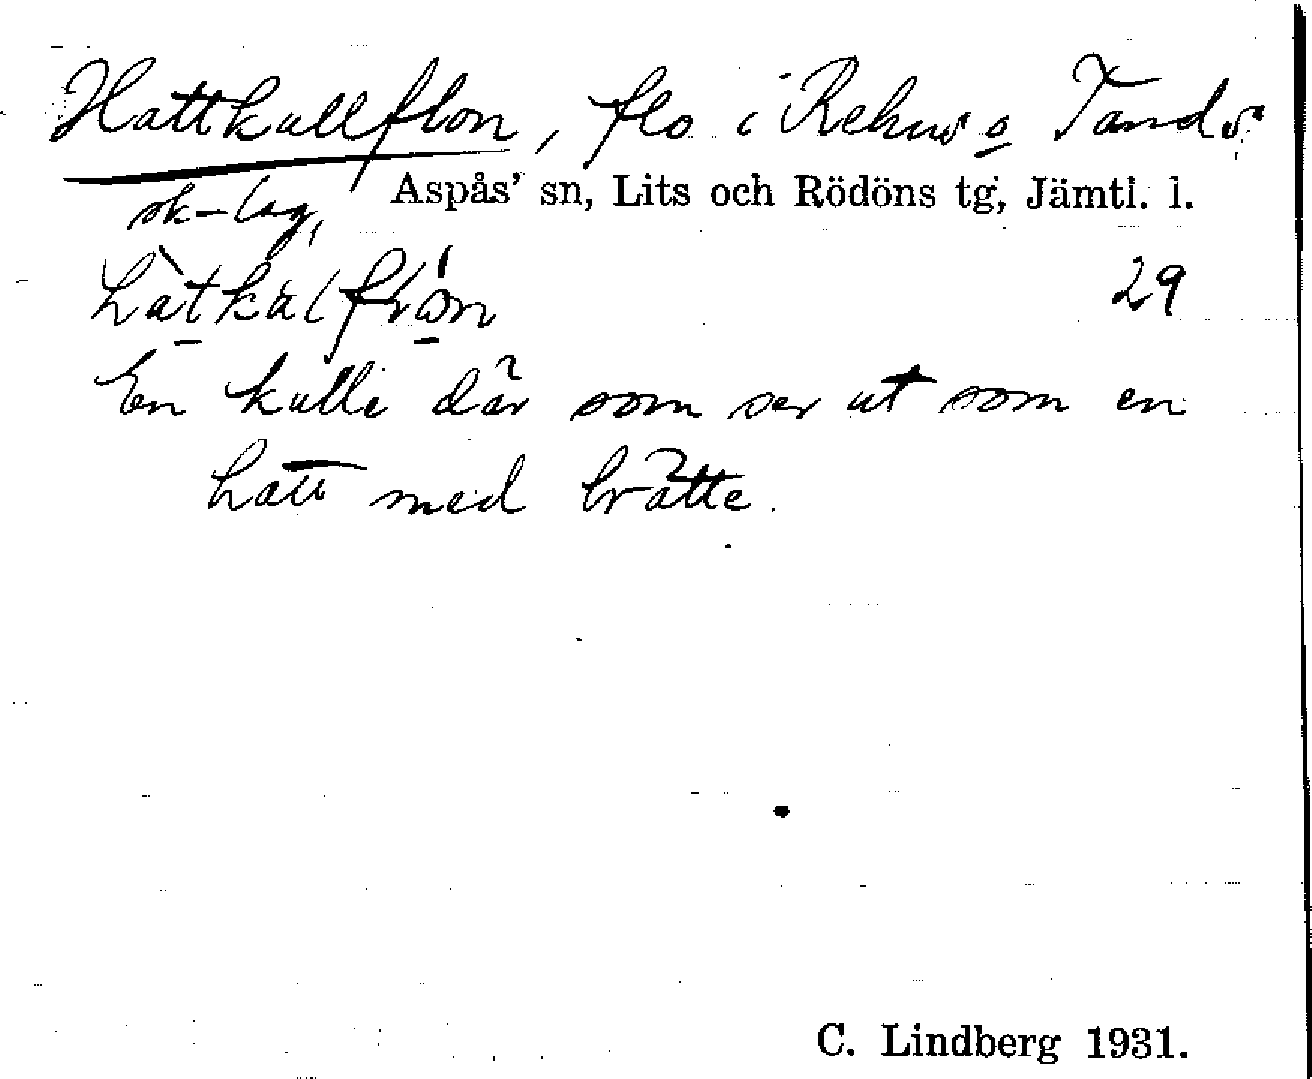 Hattkullflon, flo i Rehns o Tands
sk-lag, Aspås' sn, Lits och Rödöns tg, Jämtl. l.
hàtkàlfｌón 29
En kulle där som ser ut som en
hatt med brätte.
C. Lindberg 1931.